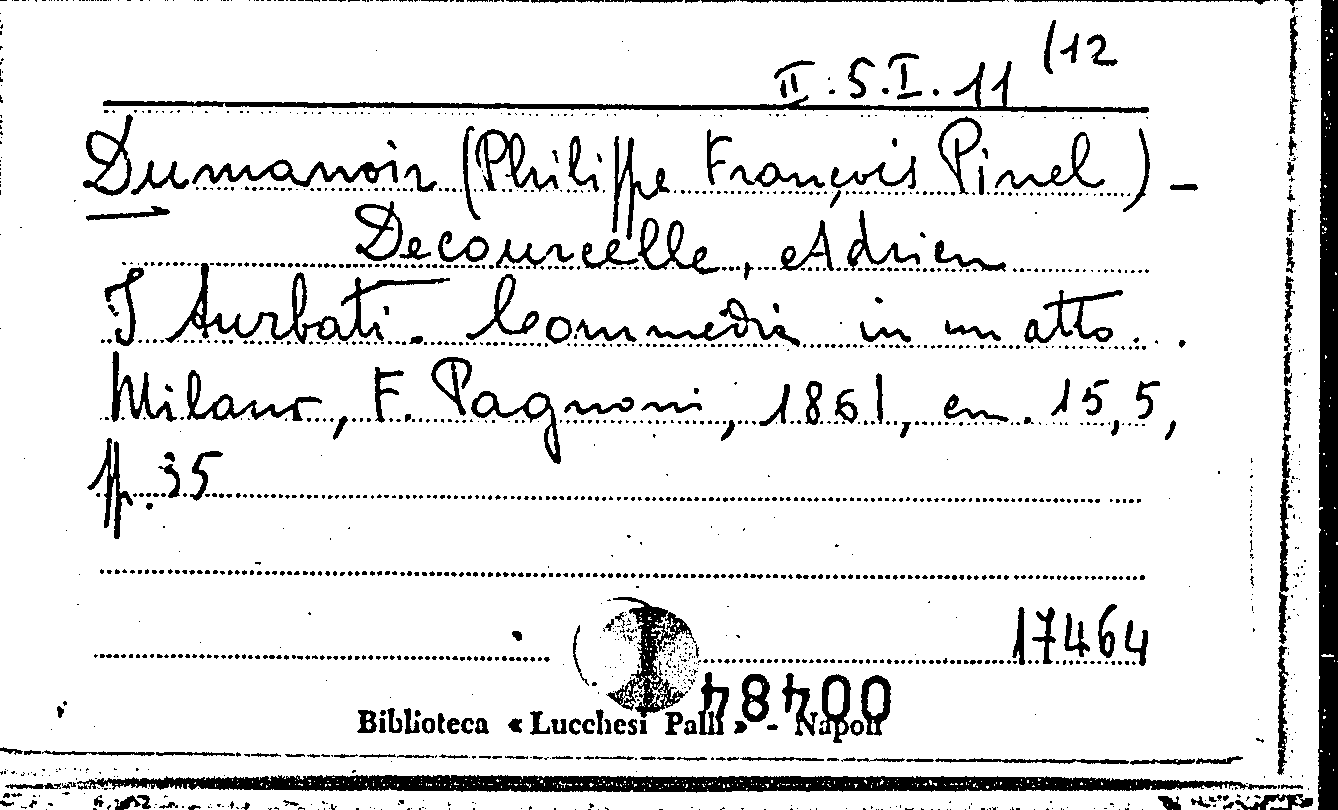 II.5.I.11 (12
Dumanoir (Philippe François Pinel) -
Decourcelle, Adrien
I . Commedia in un atto...
Milano, F. Pagnoni, 1861, cm. 15,5,
pp. 35
17464
00484
Biblioteca « Lucchesi Palli » - Napoli